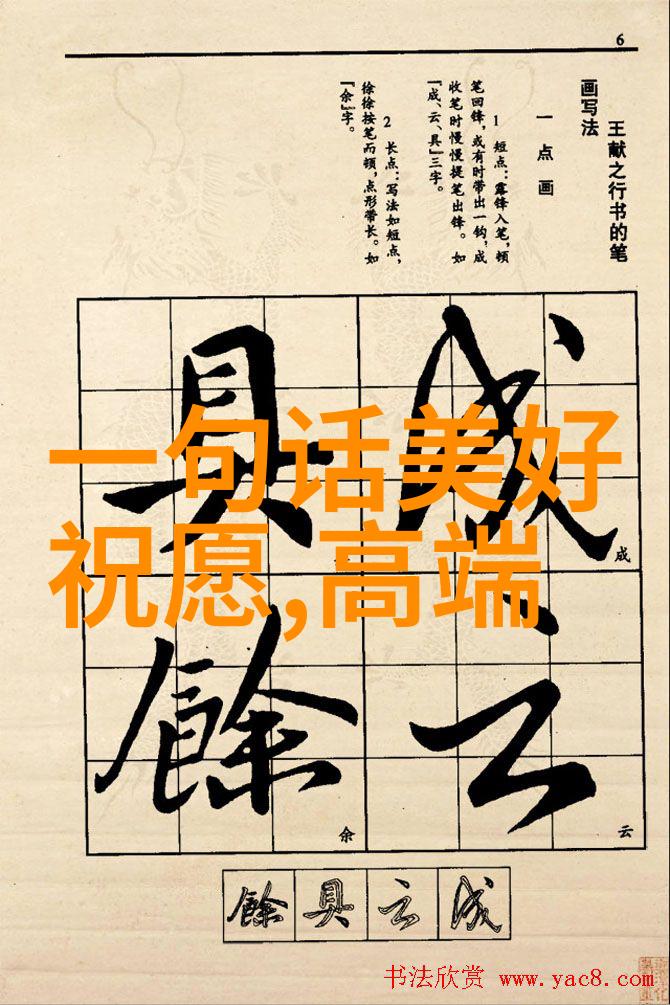 6
王献之行书的笔
画写法
一 点 画
1 短点:露锋入笔,顿
笔回锋,或有时带出一钩,成
收笔时慢慢提笔出锋。如
『成、云、具』三字。
2 长点:写法如短点,
徐徐按笔而顿,点形带长。如
『余』字。
一句话美好
祝愿,高端
成
成
云
云
具
餘
余
餘 具 云 成
书法欣赏 www.yac8.com